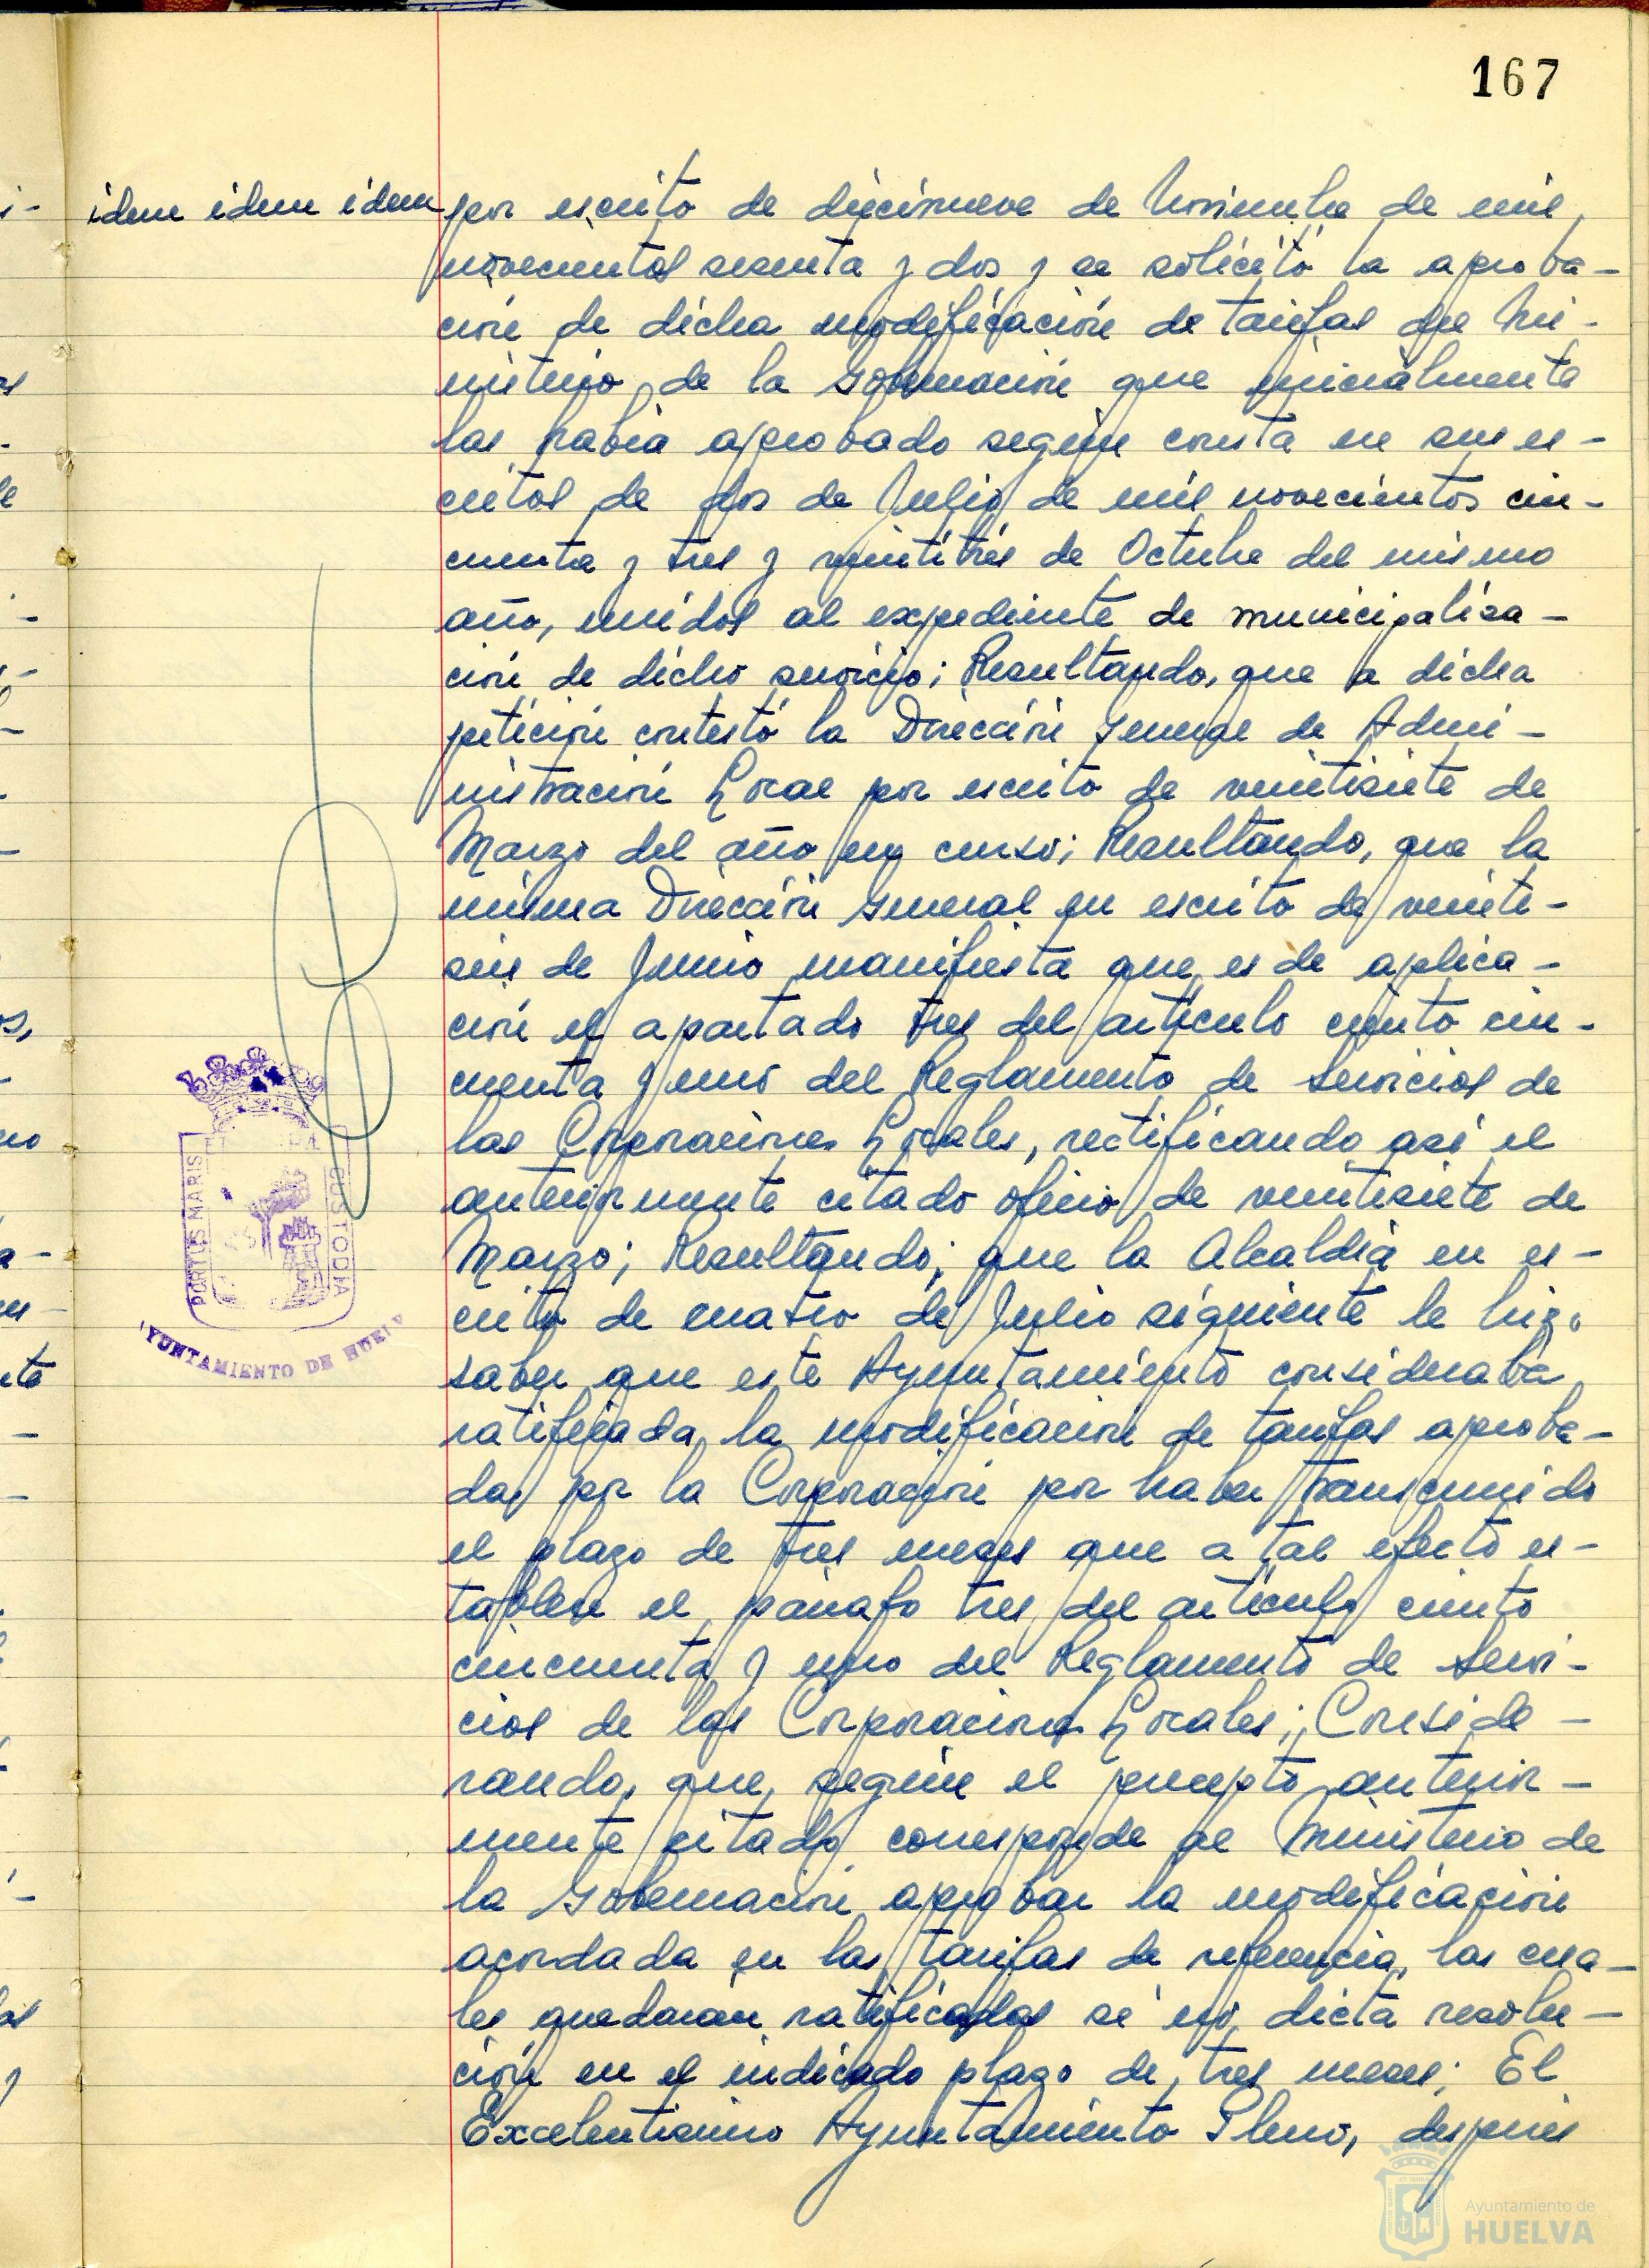 167
idem idem idem
por escrito de diecinueve de Noviembre de mil
novecientos sesenta y dos y se solicitó la aproba-
ción de dicha modificación de tarifas del Mi-
nisterio de la Gobernación que inicialmente
las había aprobado según consta en sus es-
critos de dos de Julio de mil novecientos cin-
cuenta y tres y veintitrés de Octubre del mismo
año, unidos al expediente de municipaliza-
ción de dicho servicio; Resultando, que a dicha
petición contestó la Dirección General de Admi-
nistración Local por escrito de veintisiete de
Marzo del año en curso; Resultando, que la
misma Dirección General en escrito de veinti-
seis de Junio manifiesta que es de aplica-
ción el apartado tres del artículo ciento cin-
cuenta y uno del Reglamento de Servicios de
las Corporaciones Locales, rectificando así el
anteriormente citado oficio de veintisiete de
Marzo; Resultando; que la Alcaldía en es-
crito de cuatro de Julio siguiente le hizo
saber que este Ayuntamiento consideraba
ratificada la modificación de tarifas aproba-
da por la Corporación por haber transcurrido
el plazo de tres meses que a tal efecto es-
tablece el párrafo tres del artículo ciento
cincuenta y uno del Reglamento de Servi-
cios de las Corporaciones Locales; Conside-
rando, que, según el precepto anterior-
mente citado corresponde al Ministerio de
la Gobernación aprobar la modificación
acordada en las tarifas de referencia, las cua-
les quedarán ratificadas si no dicta resolu-
ción en el indicado plazo de tres meses; El
Excelentísimo Ayuntamiento Pleno, después
PORTUS MARIS
CUSTODIA
AYUNTAMIENTO DE HUELVA
Ayuntamiento de
HUELVA